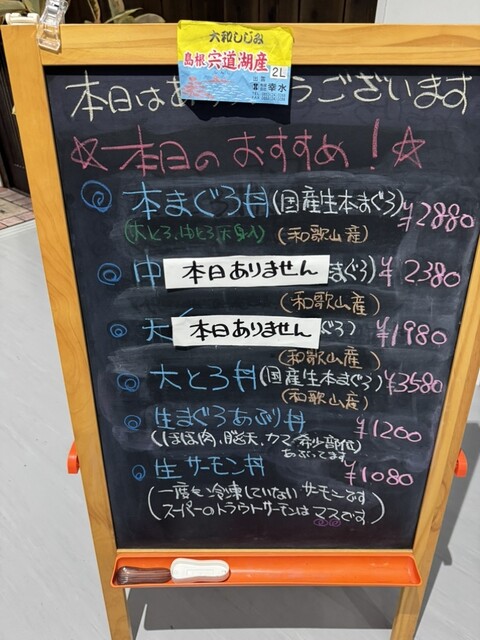 大和しじみ
島根 宍道湖産 2L
幸水
本日はあ うございます
☆本日のおすすめ!☆
本まぐろ丼(国産生本まぐろ) ¥2880
(大とろ、中とろ、赤身入) (和歌山産)
中 本日ありません まぐろ) ¥2380
(和歌山産)
本日ありません ぐろ) ¥1980
(和歌山産)
大とろ丼(国産生本まぐろ) ¥3580
(和歌山産)
生まぐろあぶり丼 ¥1200
(ほほ肉、脳天、カマ 希少部位)
あぶってます
生サーモン丼 ¥1080
(一度も冷凍していないサーモンです
スーパーのトラウトサーモンはマスです)